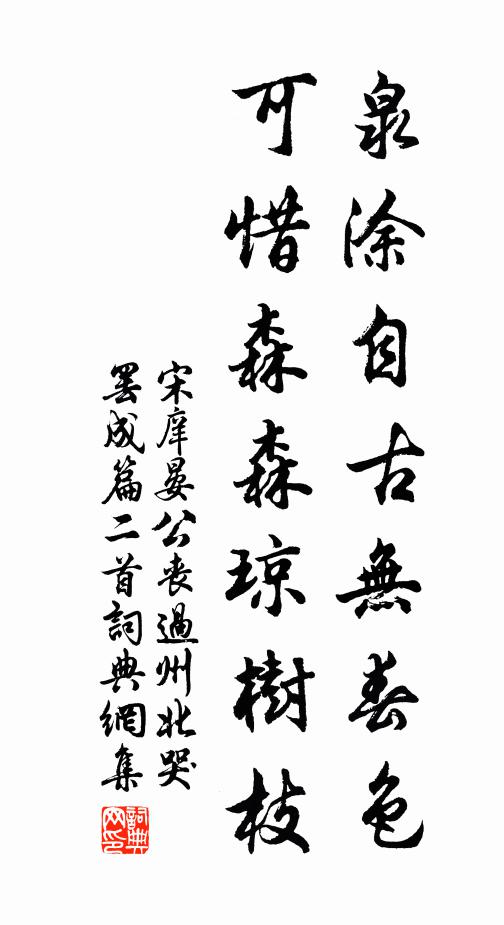 泉涂自古無春色
可惜森森琼樹枝
宋庠晏公丧過州北哭
罢成篇二首詞典網集
詞典
网印